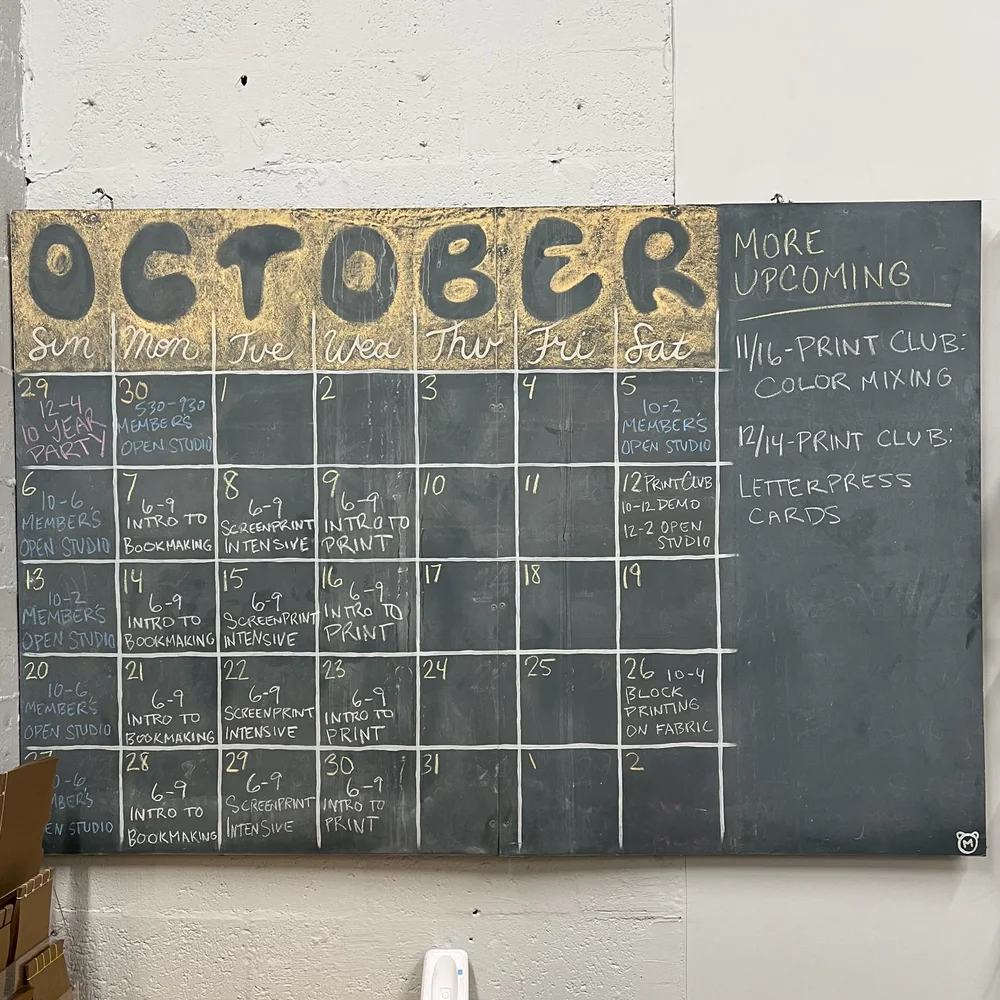 OCTOBER
Sun Mon Tue Wed Thu Fri Sat
29
12-4
10 YEAR
PARTY
30
530-930
MEMBER'S
OPEN STUDIO
1
2
3
4
5
10-2
MEMBER'S
OPEN STUDIO
6
10-6
MEMBER'S
OPEN STUDIO
7
6-9
INTRO TO
BOOKMAKING
8
6-9
SCREENPRINT
INTENSIVE
9
6-9
INTRO TO
PRINT
10
11
12 PRINT CLUB
10-12 DEMO
12-2 OPEN
STUDIO
13
10-2
MEMBER'S
OPEN STUDIO
14
6-9
INTRO TO
BOOKMAKING
15
6-9
SCREENPRINT
INTENSIVE
16
6-9
INTRO TO
PRINT
17
18
19
20
10-6
MEMBER'S
OPEN STUDIO
21
6-9
INTRO TO
BOOKMAKING
22
6-9
SCREENPRINT
INTENSIVE
23
6-9
INTRO TO
PRINT
24
25
26 10-4
BLOCK
PRINTING
ON FABRIC
27
STUDIO
28
6-9
INTRO TO
BOOKMAKING
29
6-9
SCREENPRINT
INTENSIVE
30
6-9
INTRO TO
PRINT
31
1
2
MORE
UPCOMING
11/16-PRINT CLUB:
COLOR MIXING
12/14-PRINT CLUB:
LETTERPRESS
CARDS
M